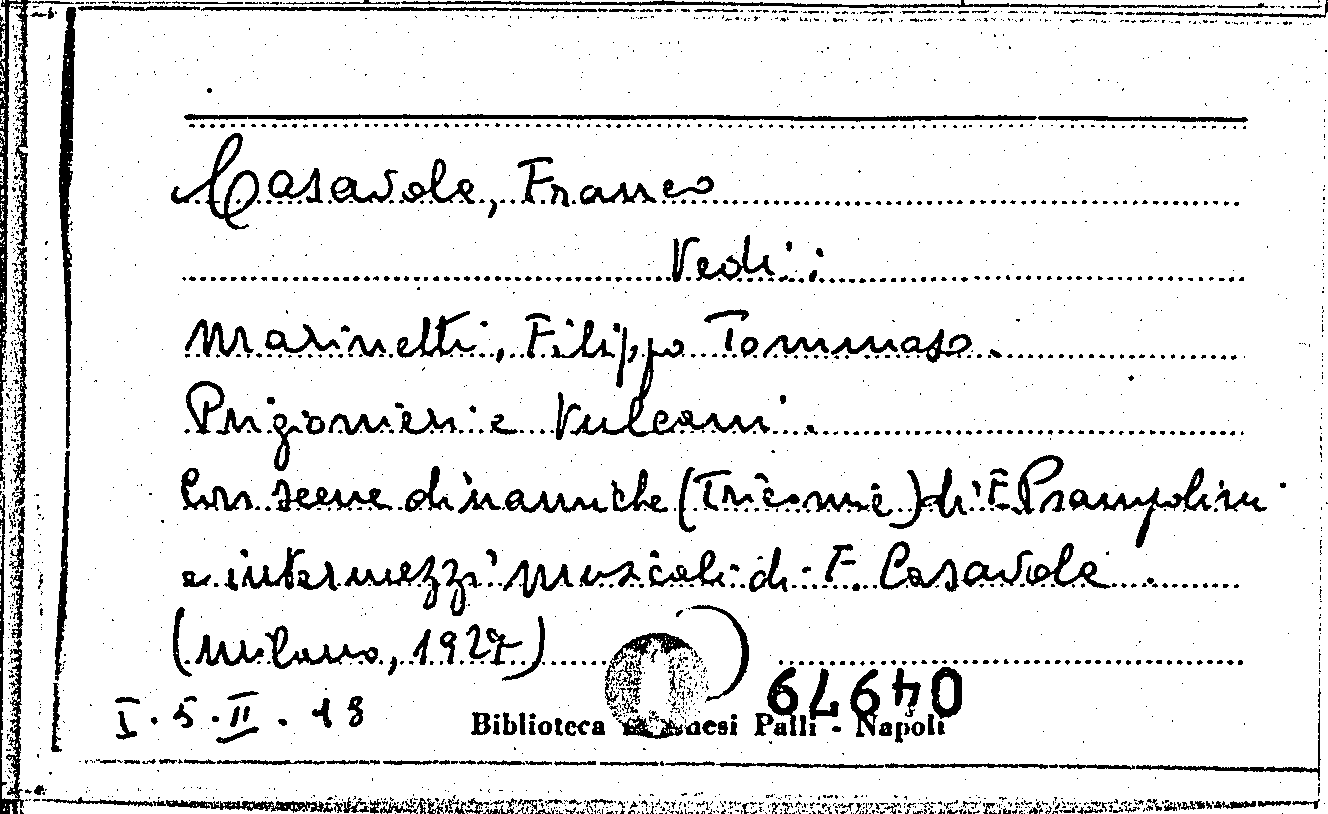 Casavola, Franco
Vedi:
Marinetti, Filippo Tommaso.
Prigionieri e Vulcani.
Con scene dinamiche (Tricomie) di E. Prampolini
e intermezzi musicali di F. Casavola.
(Milano, 1927)
I.5.II.18
Biblioteca Palli - Napoli
04979